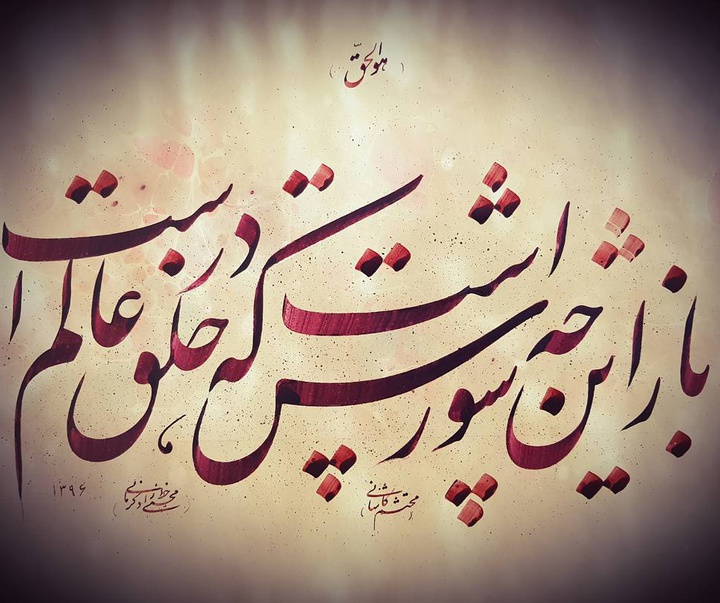 هوالحقّ
باز این چه شورش است که در خلق عالم است
محتشم کاشانی
۱۳۹۶